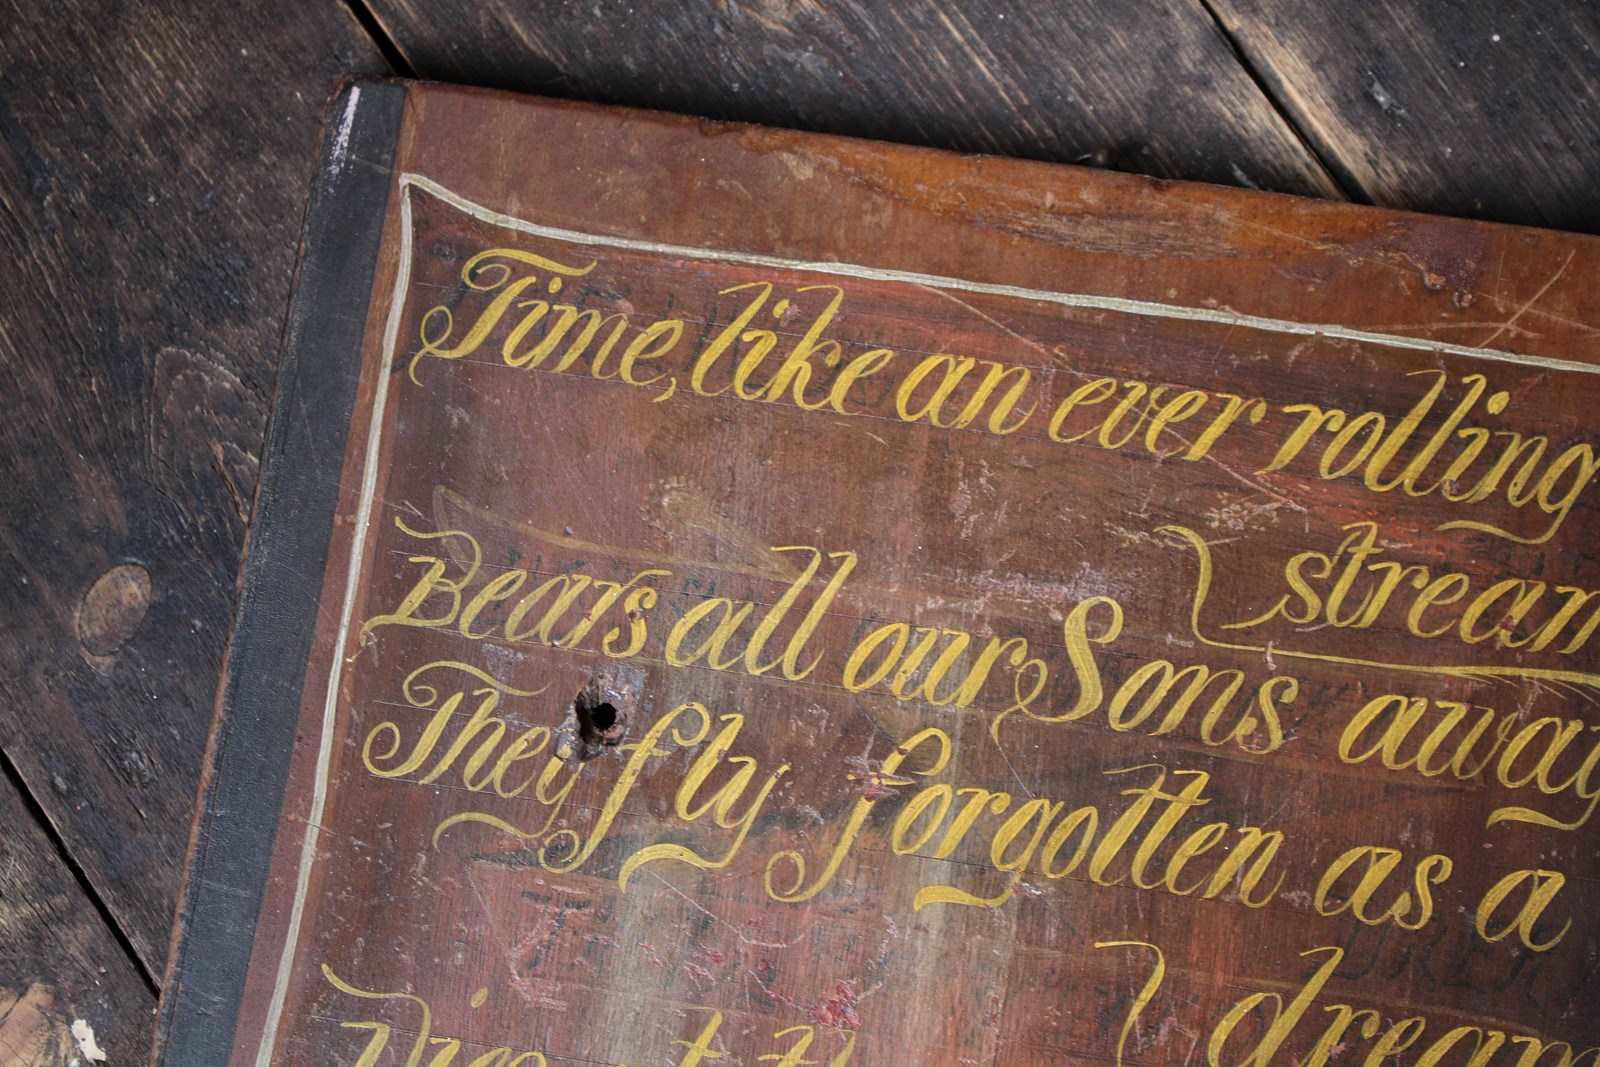 Time, like an ever rolling
stream
Bears all our Sons away
They fly forgotten as a
dream
Dies at th